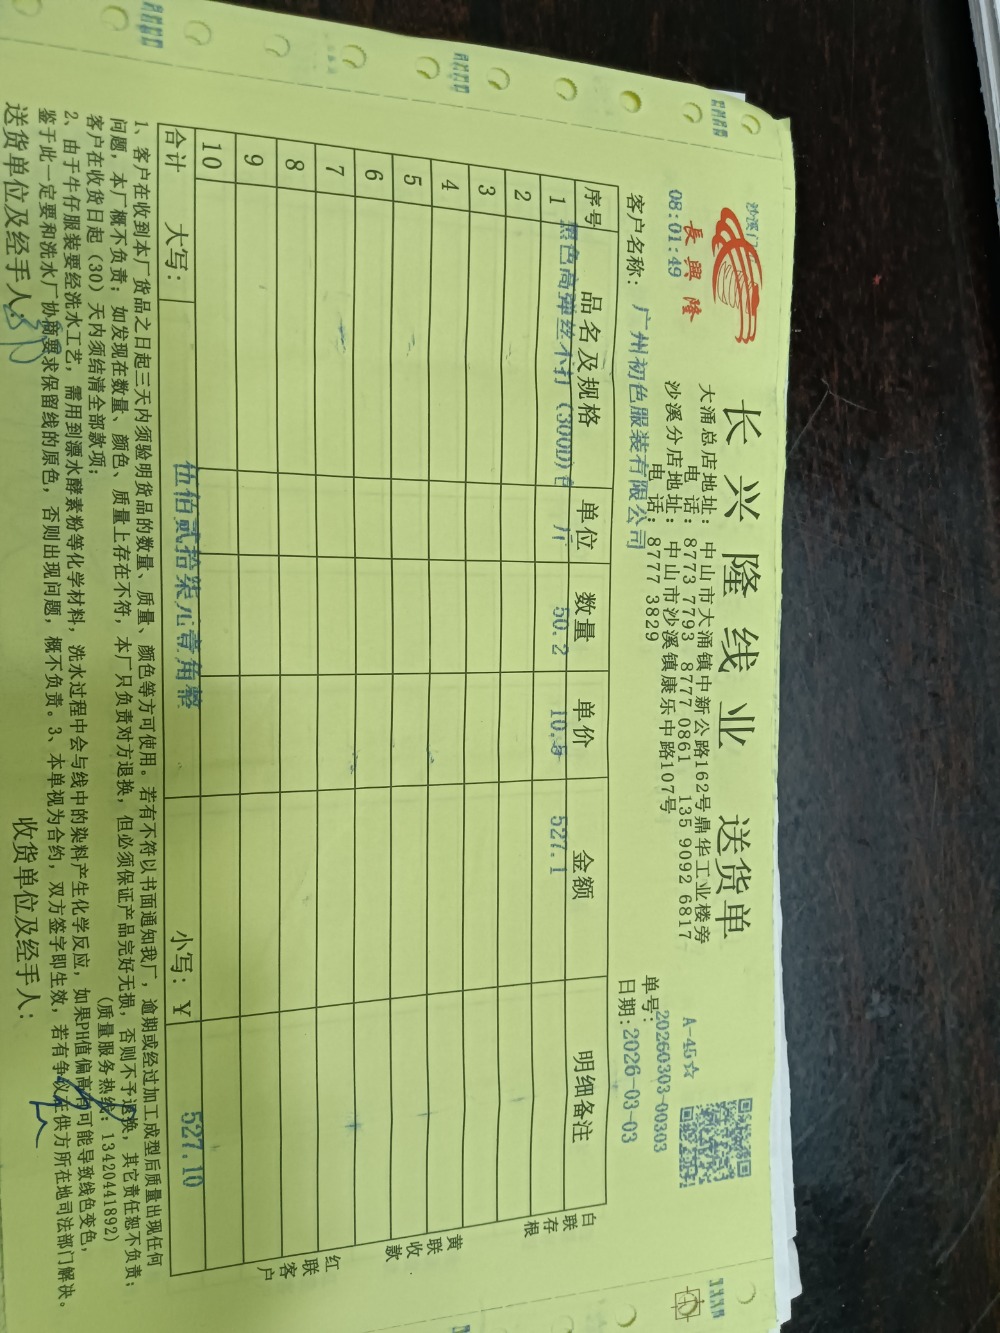 沙溪门
08:01:49
長興隆
长兴隆线业 送货单
大涌总店地址: 中山市大涌镇中新公路162号鼎华工业楼旁
电 话: 8773 7793 8777 0861 135 9092 6817
沙溪分店地址: 中山市沙溪镇康乐中路107号
电 话: 8777 3829
A-45☆
单号: 20260303-00303
客户名称: 广州初色服装有限公司
日期: 2026-03-03
序号 品名及规格 单位 数量 单价 金额 明细备注
1 黑色高弹丝不打(300D)包 斤 50.2 10.5 527.1
2
3
4
5
6
7
8
9
10
合计 大写: 伍佰贰拾柒元壹角整 小写: ¥ 527.10
白联存根
黄联收款
红联客户
1、客户在收到本厂货品之日起三天内须验明货品的数量、质量、颜色等方可使用。若有不符以书面通知我厂,逾期或经过加工成型后质量出现任何
问题,本厂概不负责;如发现在数量、颜色、质量上存在不符,本厂只负责对方退换,但必须保证产品完好无损,否则不予退换,其它责任恕不负责;
客户在收货日起(30)天内须结清全部款项; (质量服务热线: 13420441892)
2、由于牛仔服装要经洗水工艺,需用到漂水酵素粉等化学材料,洗水过程中会与线中的染料产生化学反应,如果PH值偏高有可能导致线色变色,
鉴于此一定要和洗水厂协商要求保留线的原色,否则出现问题,概不负责。3、本单视为合约,双方签字即生效,若有争议在供方所在地司法部门解决。
送货单位及经手人: 收货单位及经手人: